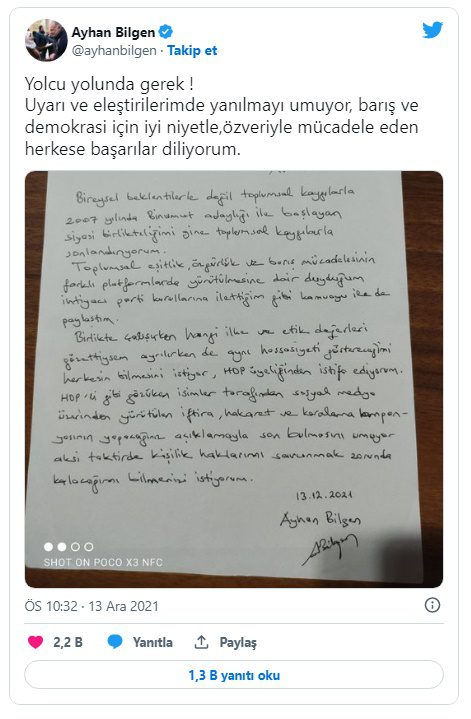 Ayhan Bilgen
@ayhanbilgen · Takip et
Yolcu yolunda gerek !
Uyarı ve eleştirilerimde yanılmayı umuyor, barış ve
demokrasi için iyi niyetle,özveriyle mücadele eden
herkese başarılar diliyorum.
Bireysel beklentilerle değil toplumsal kaygılarla
2007 yılında Binumut adaylığı ile başlayan
siyasi birlikteliğimi yine toplumsal kaygılarla
sonlandırıyorum.
Toplumsal eşitlik, özgürlük ve barış mücadelesinin
farklı platformlarda yürütülmesine dair duyduğum
ihtiyacı parti kurullarına ilettiğim gibi kamuoyu ile de
paylaştım.
Birlikte çalışırken hangi ilke ve etik değerleri
gözettiysem ayrılırken de aynı hassasiyeti göstereceğimi
herkesin bilmesini istiyor, HDP üyeliğinden istifa ediyorum.
HDP'li gibi gözüken isimler tarafından sosyal medya
üzerinden yürütülen iftira, hakaret ve karalama kampan-
yasının yapacağım açıklamayla son bulmasını umuyor
aksi taktirde kişilik haklarımı savunmak zorunda
kalacağımı bilmenizi istiyorum.
13.12.2021
Ayhan Bilgen
ABilgen
SHOT ON POCO X3 NFC
ÖS 10:32 · 13 Ara 2021
2,2 B Yanıtla Paylaş
1,3 B yanıtı oku